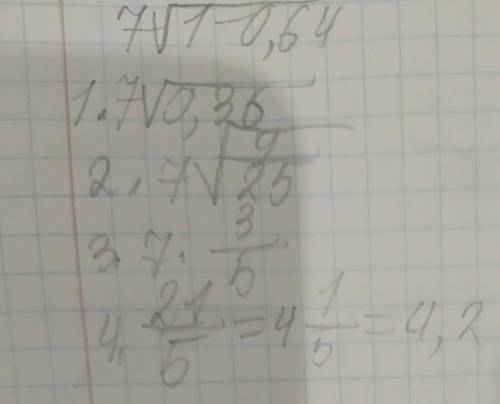 7√1-0,64
1. 7√0,36
2. 7√9/25
3. 7. 3/5
4. 21/5 = 4 1/5 = 4,2